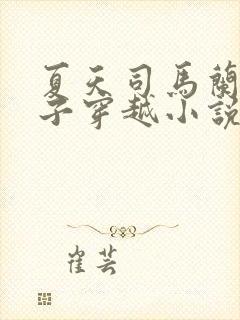 夏天司馬蘭
子穿越小說
崔芸